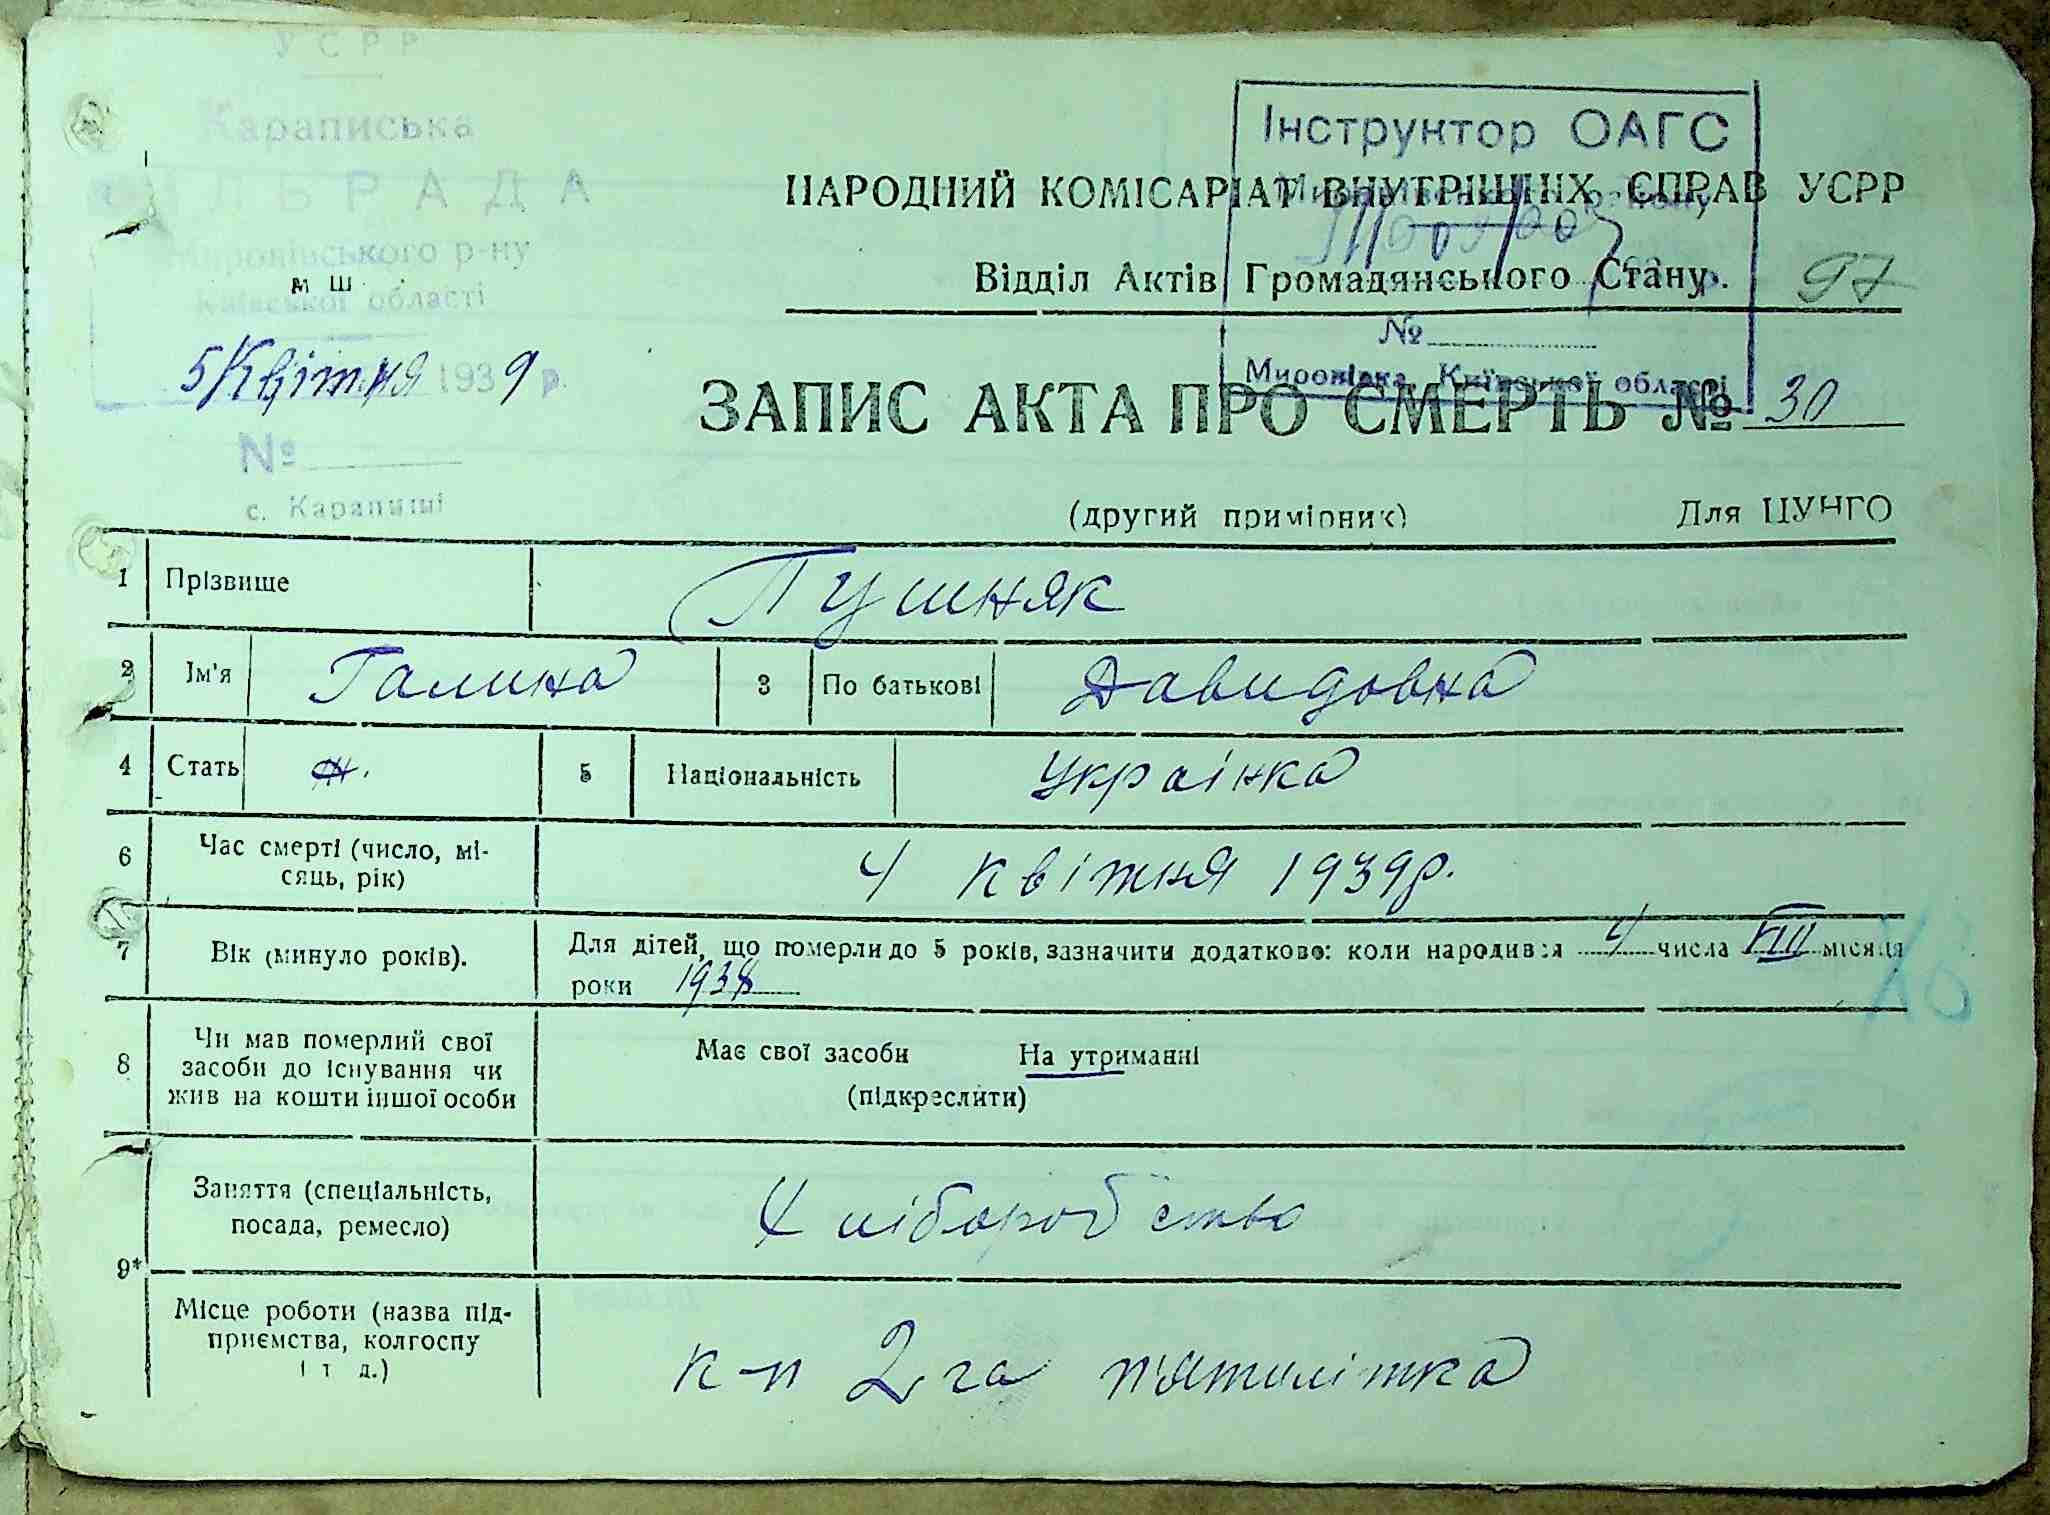 УСРР
Караписька
СІЛЬРАДА
Миронівського р-ну
Київської області
5 Квітня 1939 р.
№
с. Карапиші
Інструктор ОАГС
Миронівського району
№
Миронівка Київської області
НАРОДНИЙ КОМІСАРІАТ ВНУТРІШНІХ СПРАВ УСРР
Відділ Актів Громадянського Стану.
97
ЗАПИС АКТА ПРО СМЕРТЬ № 30
(другий примірник) Для ЦУНГО
1 Прізвище Пушняк
2 Ім'я Галина 3 По батькові Давидовна
4 Стать ж. 5 Національність Українка
6 Час смерті (число, мі-
сяць, рік) 4 квітня 1939р.
7 Вік (минуло років). Для дітей, що померли до 5 років, зазначити додатково: коли народився 4 числа VIII місяця
роки 1938
8 Чи мав померлий свої
засоби до існування чи
жив на кошти іншої особи
Має свої засоби На утриманні
(підкреслити)
9* Заняття (спеціальність,
посада, ремесло)
хліборобство
Місце роботи (назва під-
приємства, колгоспу
і т д.)
к-п 2га п'ятилітка